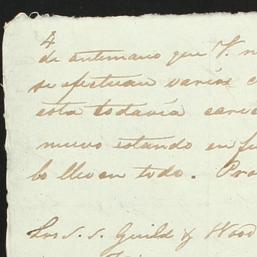 4
de antemano que V. n
se efectuan varias c
esta todavia care
nuevo estando en fu
bo llevan todo. Pro
Los S. S. Guild & Wood